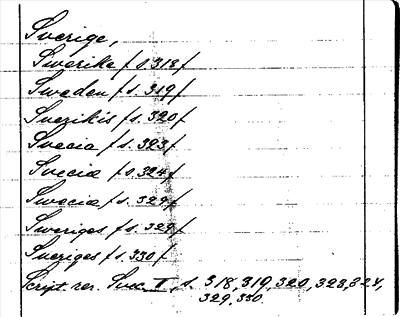 Sverige,
Swerike / s. 318 /
Sweden / s. 319 /
Sverikis / s. 320 /
Svecia / s. 323 /
Svecia / s. 324 /
Swecia / s. 329 /
Sweriges / s. 329 /
Sveriges / s. 330 /
Script. rer. Suec. II, s. 318, 319, 320, 323, 324,
329, 330